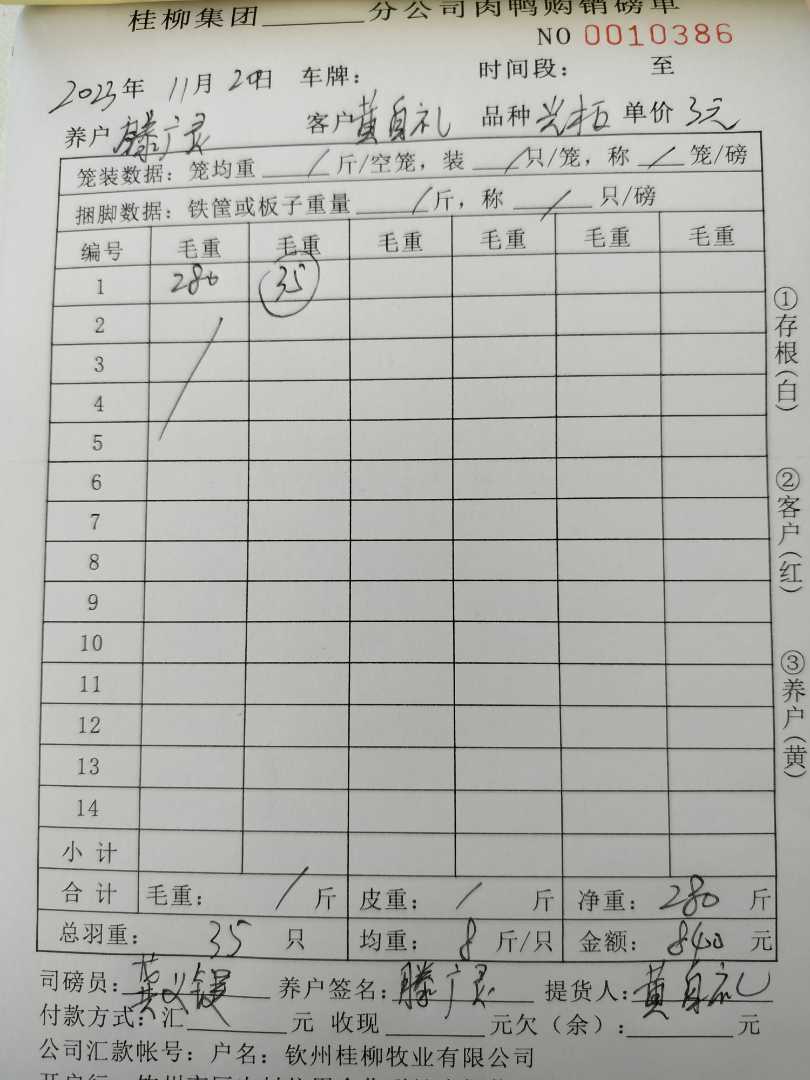 桂柳集团______分公司肉鸭购销磅单
NO 0010386
2023年 11月 20日 车牌: 时间段: 至
养户 滕广灵 客户 黄自礼 品种 单价 3元
笼装数据: 笼均重 / 斤/空笼, 装 / 只/笼, 称 / 笼/磅
捆脚数据: 铁筐或板子重量 / 斤, 称 / 只/磅
编号 毛重 毛重 毛重 毛重 毛重 毛重
1 280 35
2
3
4
5
6
7
8
9
10
11
12
13
14
小 计
合 计 毛重: / 斤 皮重: / 斤 净重: 280 斤
总羽重: 35 只 均重: 8 斤/只 金额: 840 元
司磅员: 养户签名: 滕广灵 提货人: 黄自礼
付款方式: 汇______元 收现______元欠(余):______元
公司汇款帐号: 户名: 钦州桂柳牧业有限公司
①存根(白)
②客户(红)
③养户(黄)